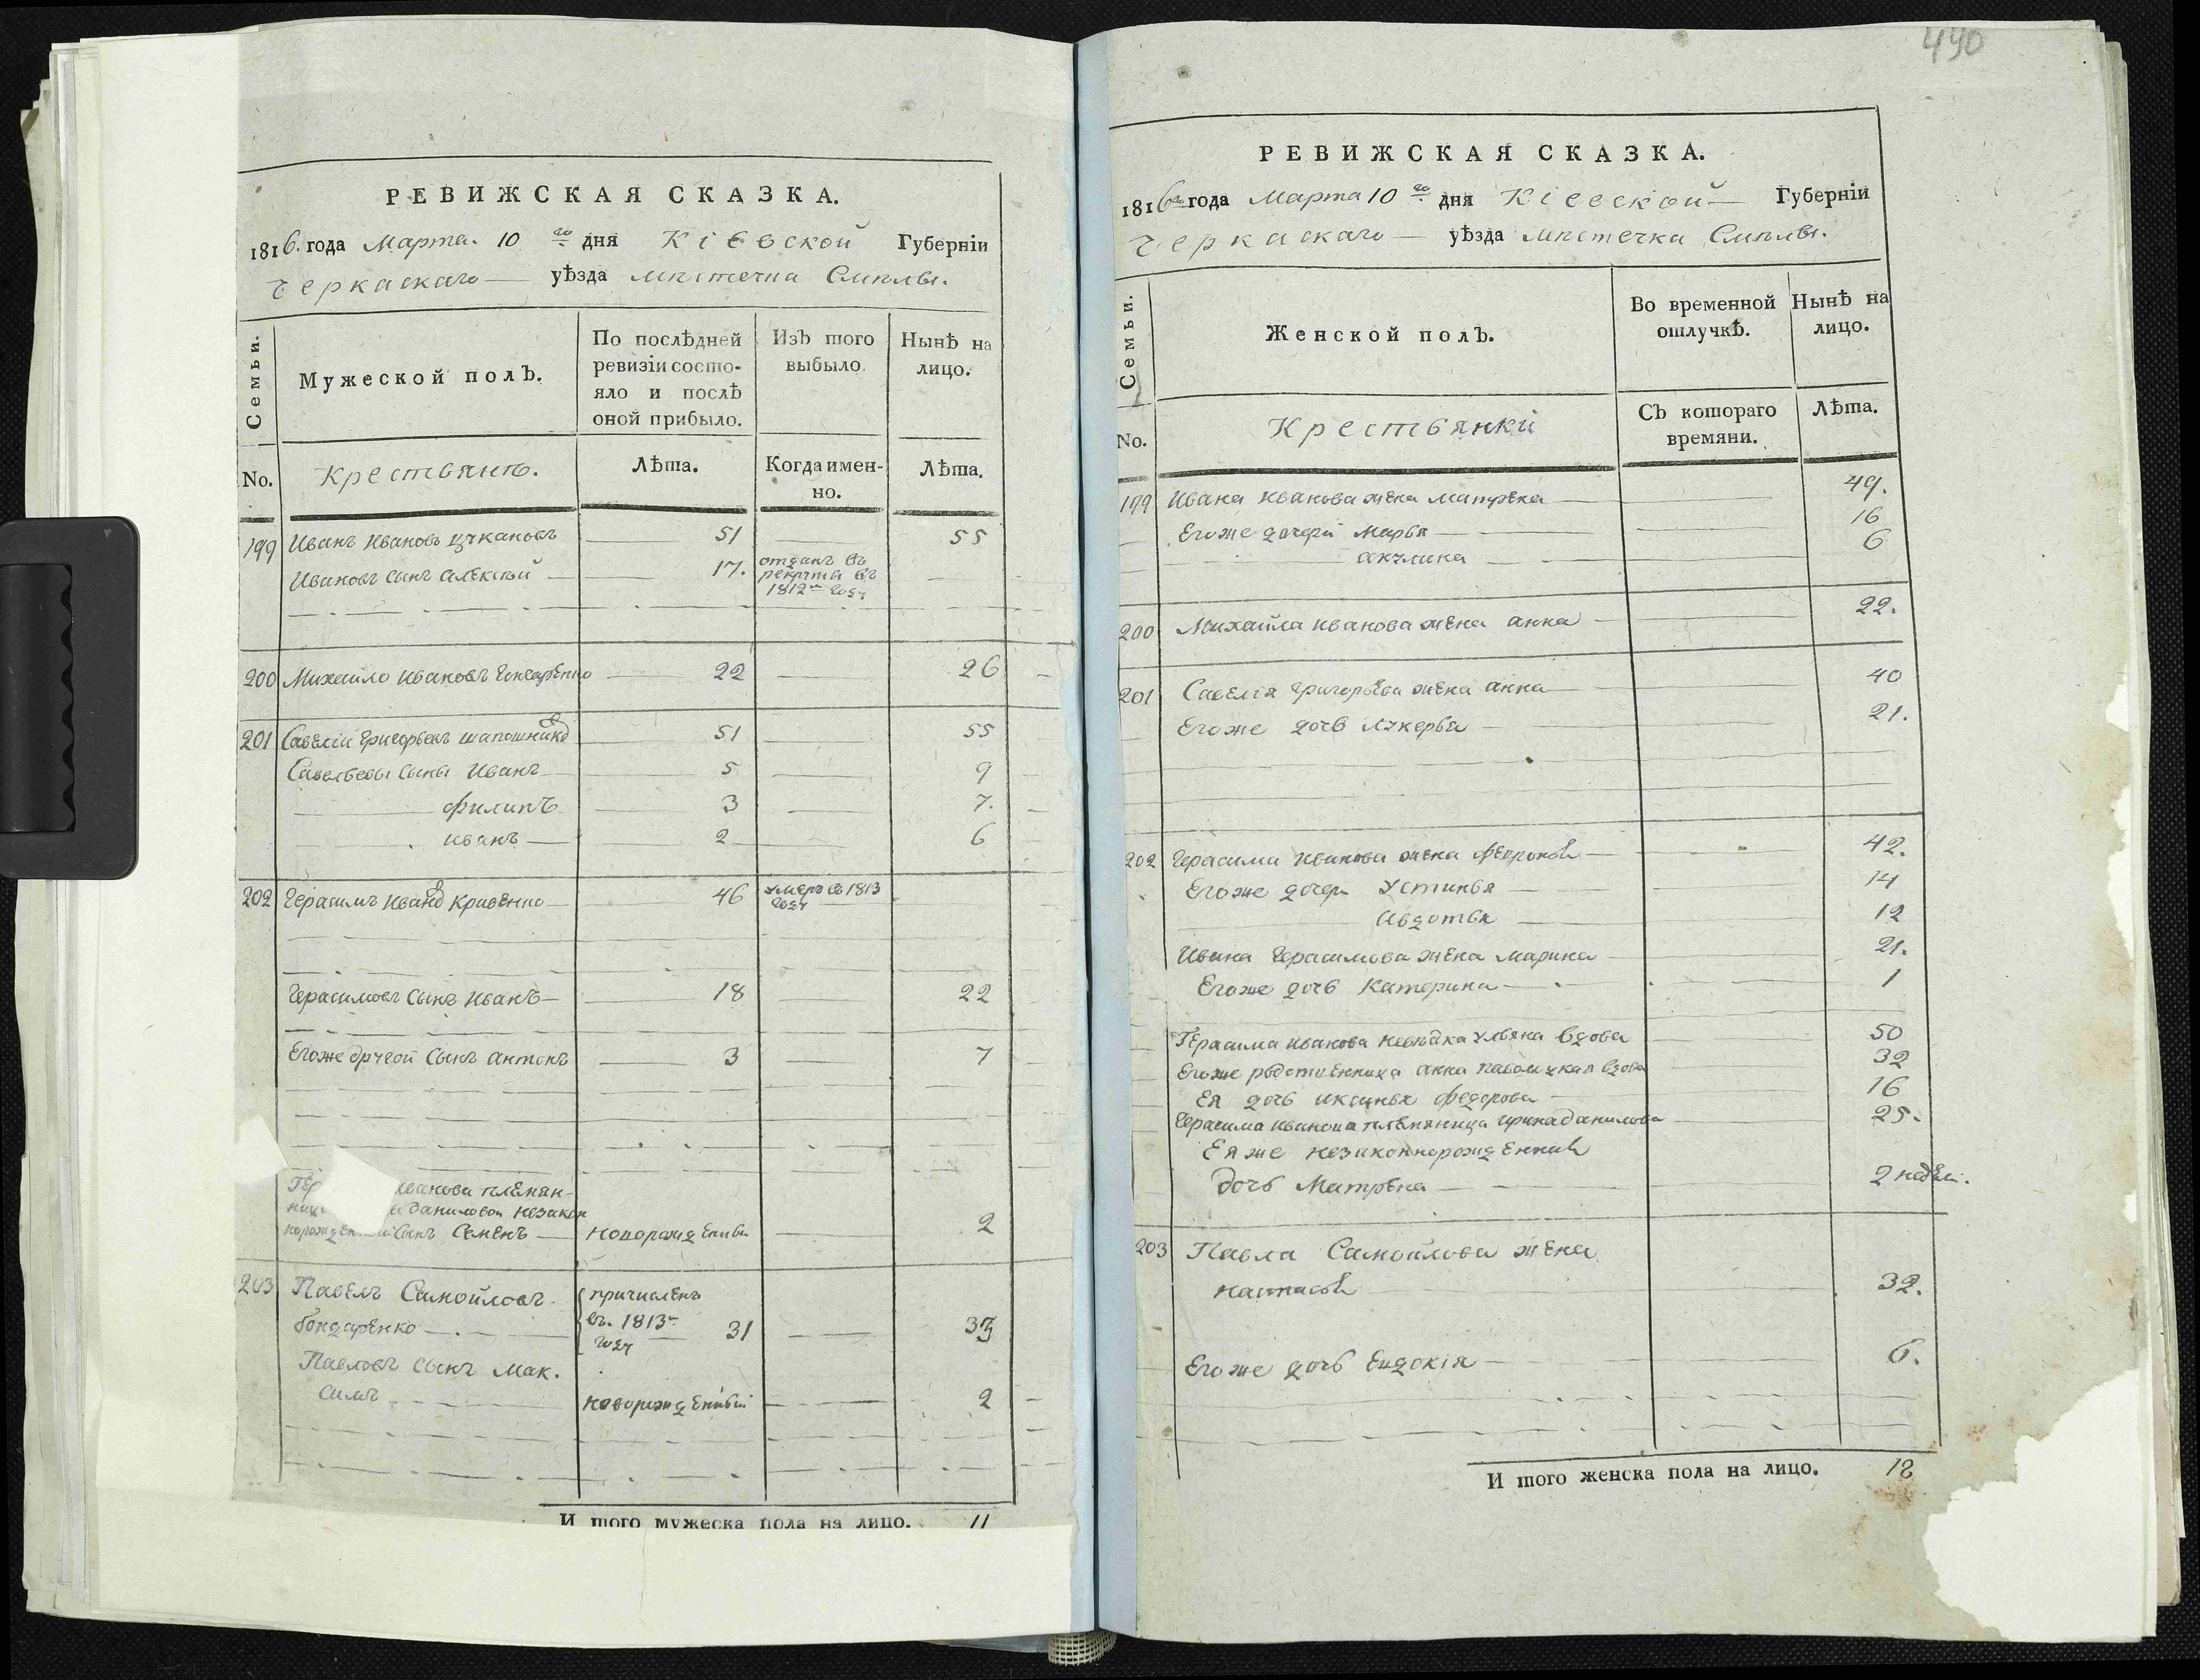 490
РЕВИЖСКАЯ СКАЗКА.
1816. года Марта. 10 го дня Кіевской Губерніи
Черкаскаго уѣзда мѣстечка Смѣлы.
Семьи.
Мужеской полЪ.
По послѣдней
ревизіи состо-
яло и послѣ
оной прибыло.
ИзЪ того
выбыло.
Нынѣ на
лицо.
No.
Крестьянѣ.
Лѣта.
Когда имен-
но.
Лѣта.
199 Иванъ Ивановъ 51 55
Ивановъ сынъ Алексѣй 17. отданъ въ
рекруты въ
1812м году
200 Михайло Ивановъ Гончаренко 22 26
201 Савелій Григорьевъ Шапошниковъ 51 55
Савельевы сыны Иванъ 5 9
Филипъ 3 7.
Иванъ 2 6
202 Герасимъ Ивановъ Кривенко 46 умеръ въ 1813
году
Герасимовъ сынъ Иванъ 18 22
Егоже другой сынъ Антонъ 3 7
Иванова племян-
Даниловой незакон
сынъ Семенъ новорожденный 2
203 Павелъ Самойловъ причисленъ
Бондаренко въ. 1813м 31 33
году
Павловъ сынъ Мак.
симъ новорожденный 2
И того мужеска пола на лицо. 11
РЕВИЖСКАЯ СКАЗКА.
1816го года Марта 10 го дня Кіевской Губерніи
Черкаскаго уѣзда мѣстечка Смѣлы.
Семьи.
Женской полЪ.
Во временной
отлучкѣ.
Нынѣ на
лицо.
No.
Крестьянки
СЪ котораго
времяни.
Лѣта.
199 Ивана Иванова жена Матрена 49.
Егоже дочери Марья 16
Акулина 6
200 Михайла Иванова жена Анна 22.
201 Савелія Григорьева жена Анна 40
Егоже дочь Лукерья 21.
202 Герасима Иванова жена 42.
Егоже дочери Устинья 14
Авдотья 12
Ивана Герасимова жена Марина 21.
Егоже дочь Катерина 1
Герасима Иванова невѣстка Ульяна вдова 50
Егоже родственница Анна вдова 32
Ея дочь Аксинья Федорова 16
Герасима Иванова племяница Ирина Данилова 25.
Ея же незаконнорожденная
дочь Матрена 2 недели.
203 Павла Самойлова жена
Настасья 32.
Егоже дочь Евдокія 6.
И того женска пола на лицо. 18